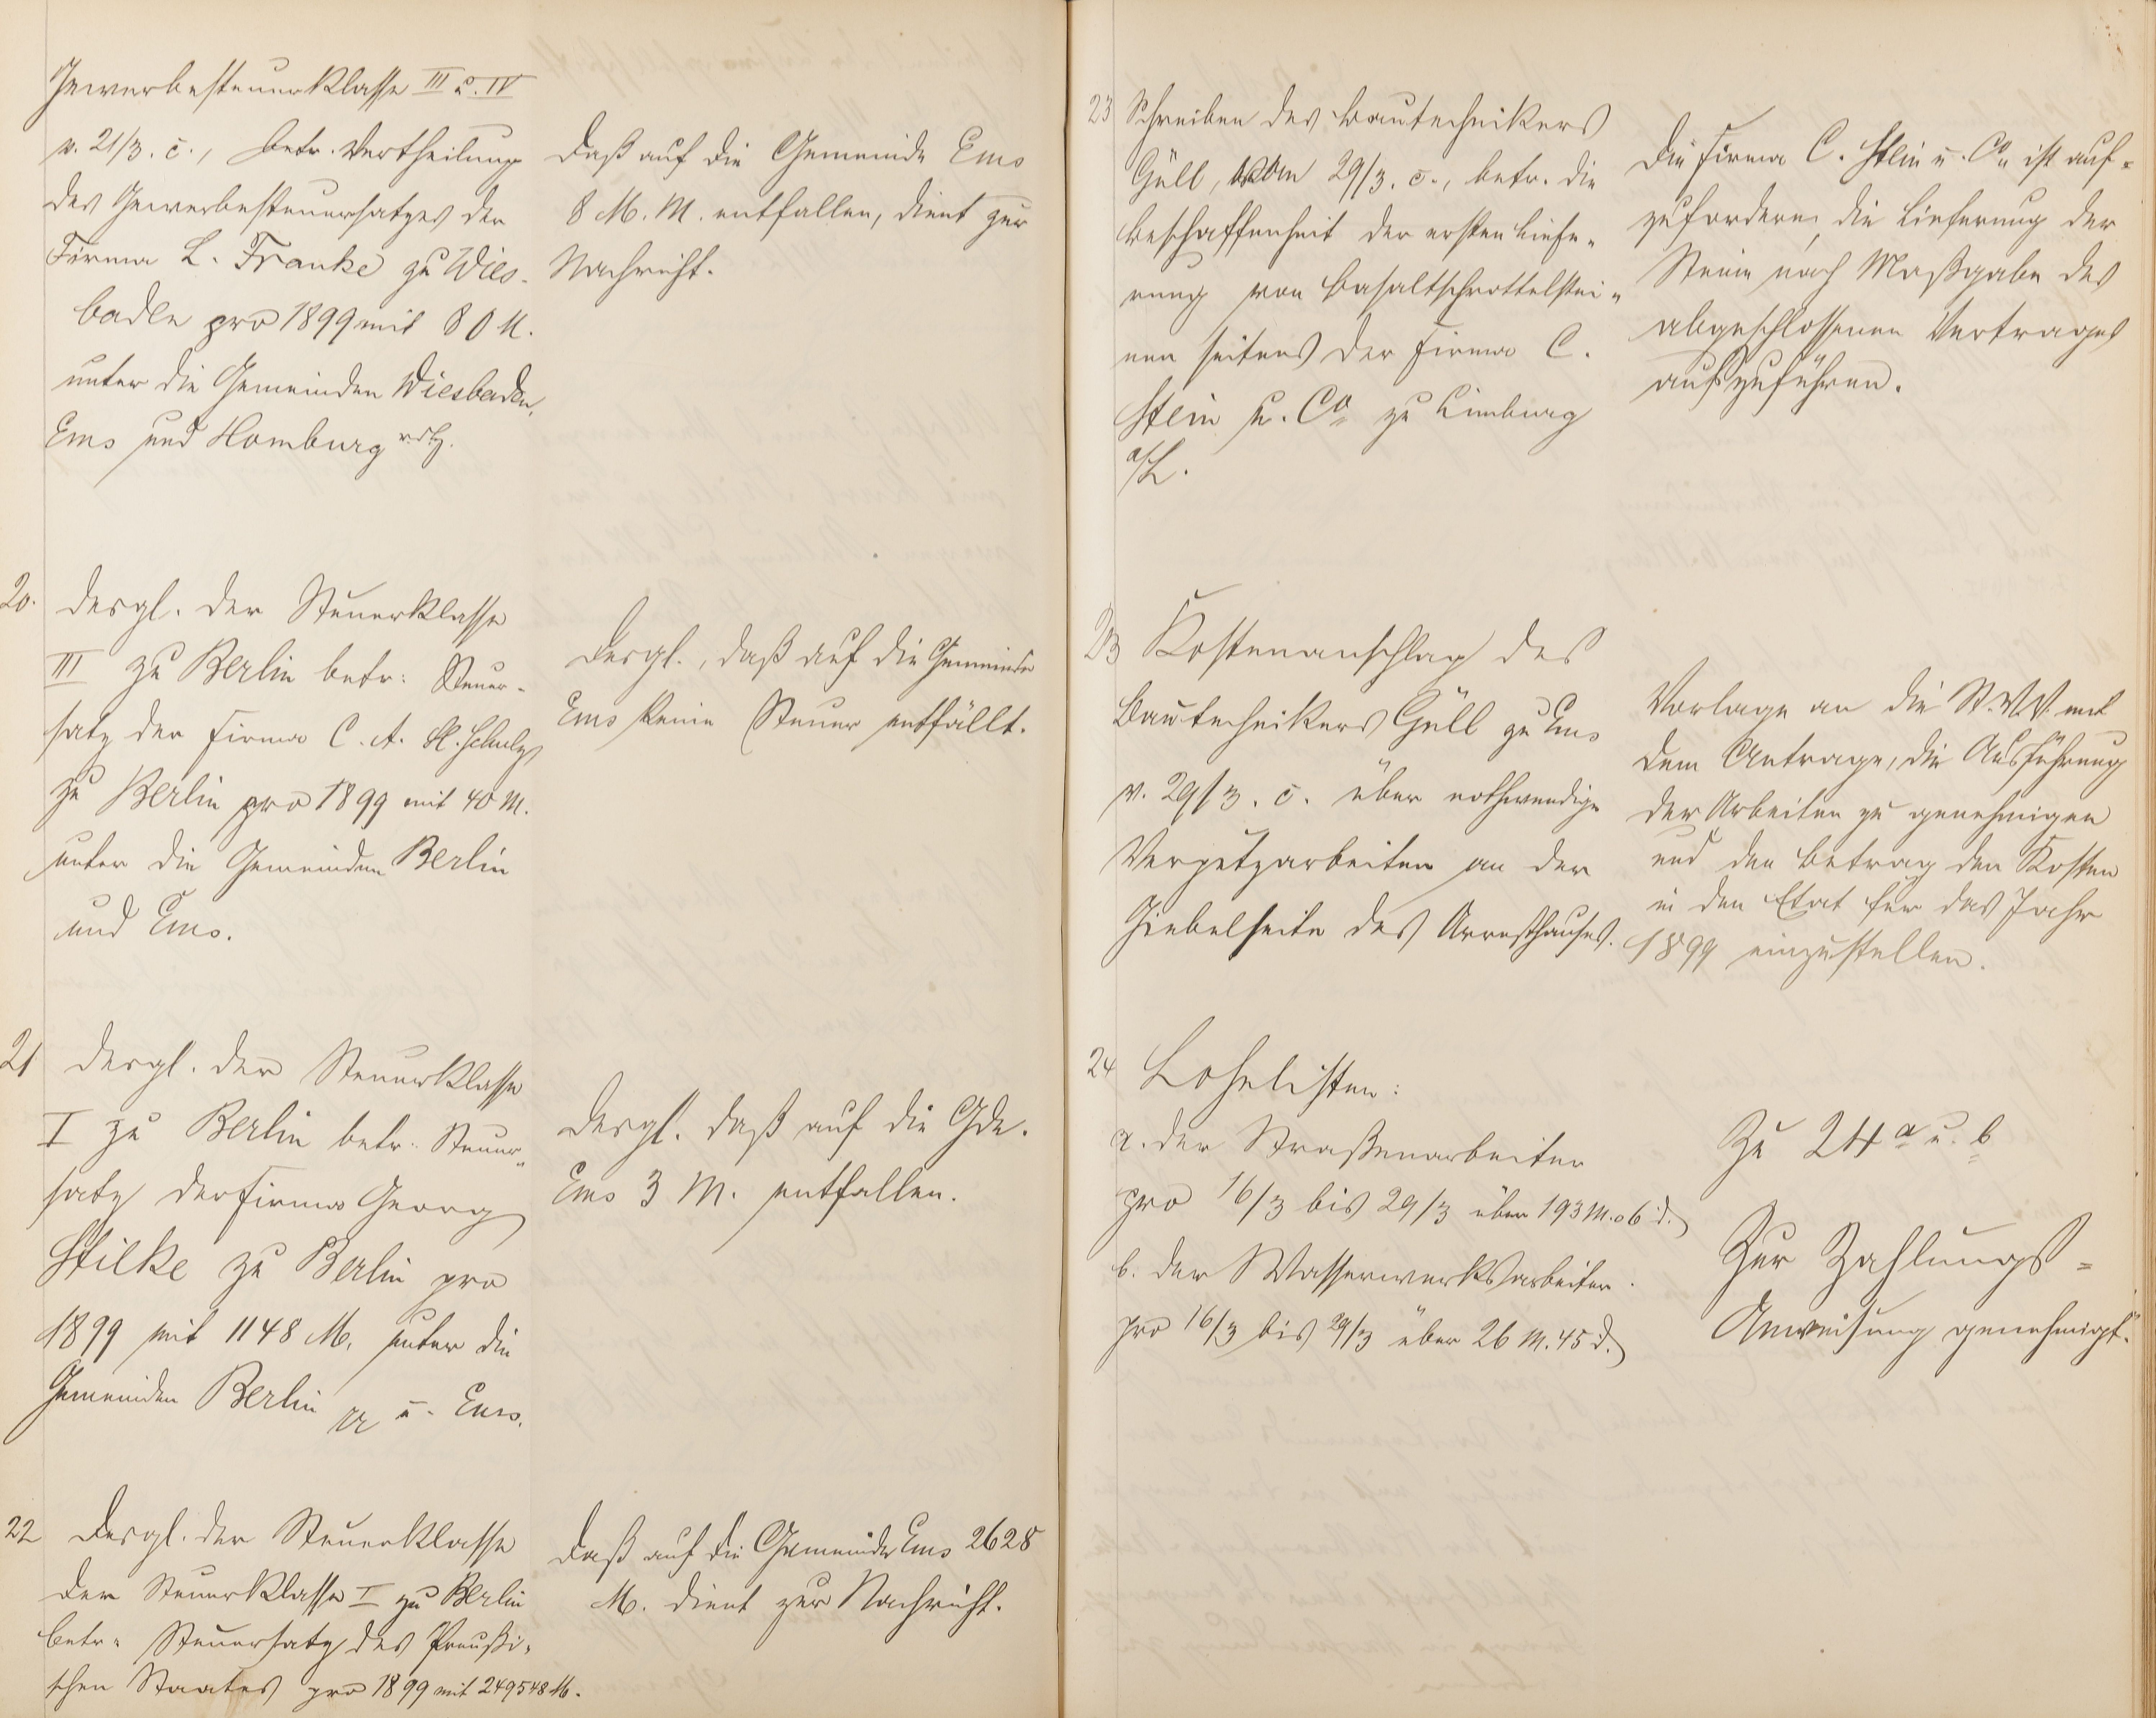 Gewerbesteuerklasse III u. IV
v. 21/3. c., betr. Vertheilung
des Gewerbesteuersatzes der
Firma L. Franke zu Wies-
baden pro 1899 mit 80 M.
unter die Gemeinden Wiesbaden,
Ems und Homburg
Daß auf die Gemeinde Ems
8 M. M. entfallen, dient zur
Nachricht.
20. desgl. der Steuerklasse
III zu Berlin betr. Steuer-
satz der Firma C. A. H. Schulz
zu Berlin pro 1899 mit 40 M.
unter die Gemeinden Berlin
und Ems.
Desgl., daß auf die Gemeinde
Ems keine Steuer entfällt.
21 desgl. der Steuerklasse
I zu Berlin betr. Steuer-
satz der Firma Georg
Stilke zu Berlin pro
1899 mit 1148 M. unter die
Gemeinden Berlin u. Ems.
Desgl. daß auf die Gde.
Ems 3 M. entfallen.
22 Desgl. der Steuerklasse
der Steuerklasse I zu Berlin
betr. Steuersatz des Preußi-
schen Staates pro 1899 mit 249548 M.
Daß auf die Gemeinde Ems 2628
M. dient zur Nachricht.
23 Schreiben des Bautechnikers
Güll, vom 29/3. c., betr. die
Beschaffenheit der ersten Liefe-
rung von Basaltschrottelstei-
nen seitens der Firma C.
Stein u. Co zu Limburg
a/L.
Die Firma C. Stein u. Co ist auf-
zufordern, die Lieferung der
Steine nach Maßgabe des
abgeschlossenen Vertrages
auszuführen.
23 Kostenanschlag des
Bautechnikers Güll zu Ems
v. 29/3. c. über nothwendige
Verputzarbeiten an der
Giebelseite des Arresthauses.
Vorlage an die St.V.V. mit
dem Antrage, die Ausführung
der Arbeiten zu genehmigen
und den Betrag der Kosten
in den Etat für das Jahr
1899 einzustellen.
24 Lohnlisten:
a. der Straßenarbeiter
pro 16/3 bis 29/3 über 193 M. 06 d.
b. der Wasserwerksarbeiter
pro 16/3 bis 29/3 über 26 M. 45 d.
Zu 24 a u. b
Zur Zahlungs-
Anweisung genehmigt.